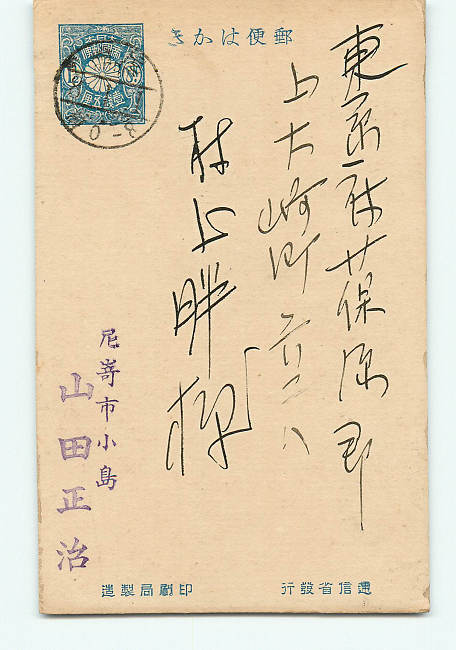 郵便はかき
東京府荏原郡
上大崎町
村上胖様
尼嵜市小島
山田正治
遞信省發行 印刷局製造